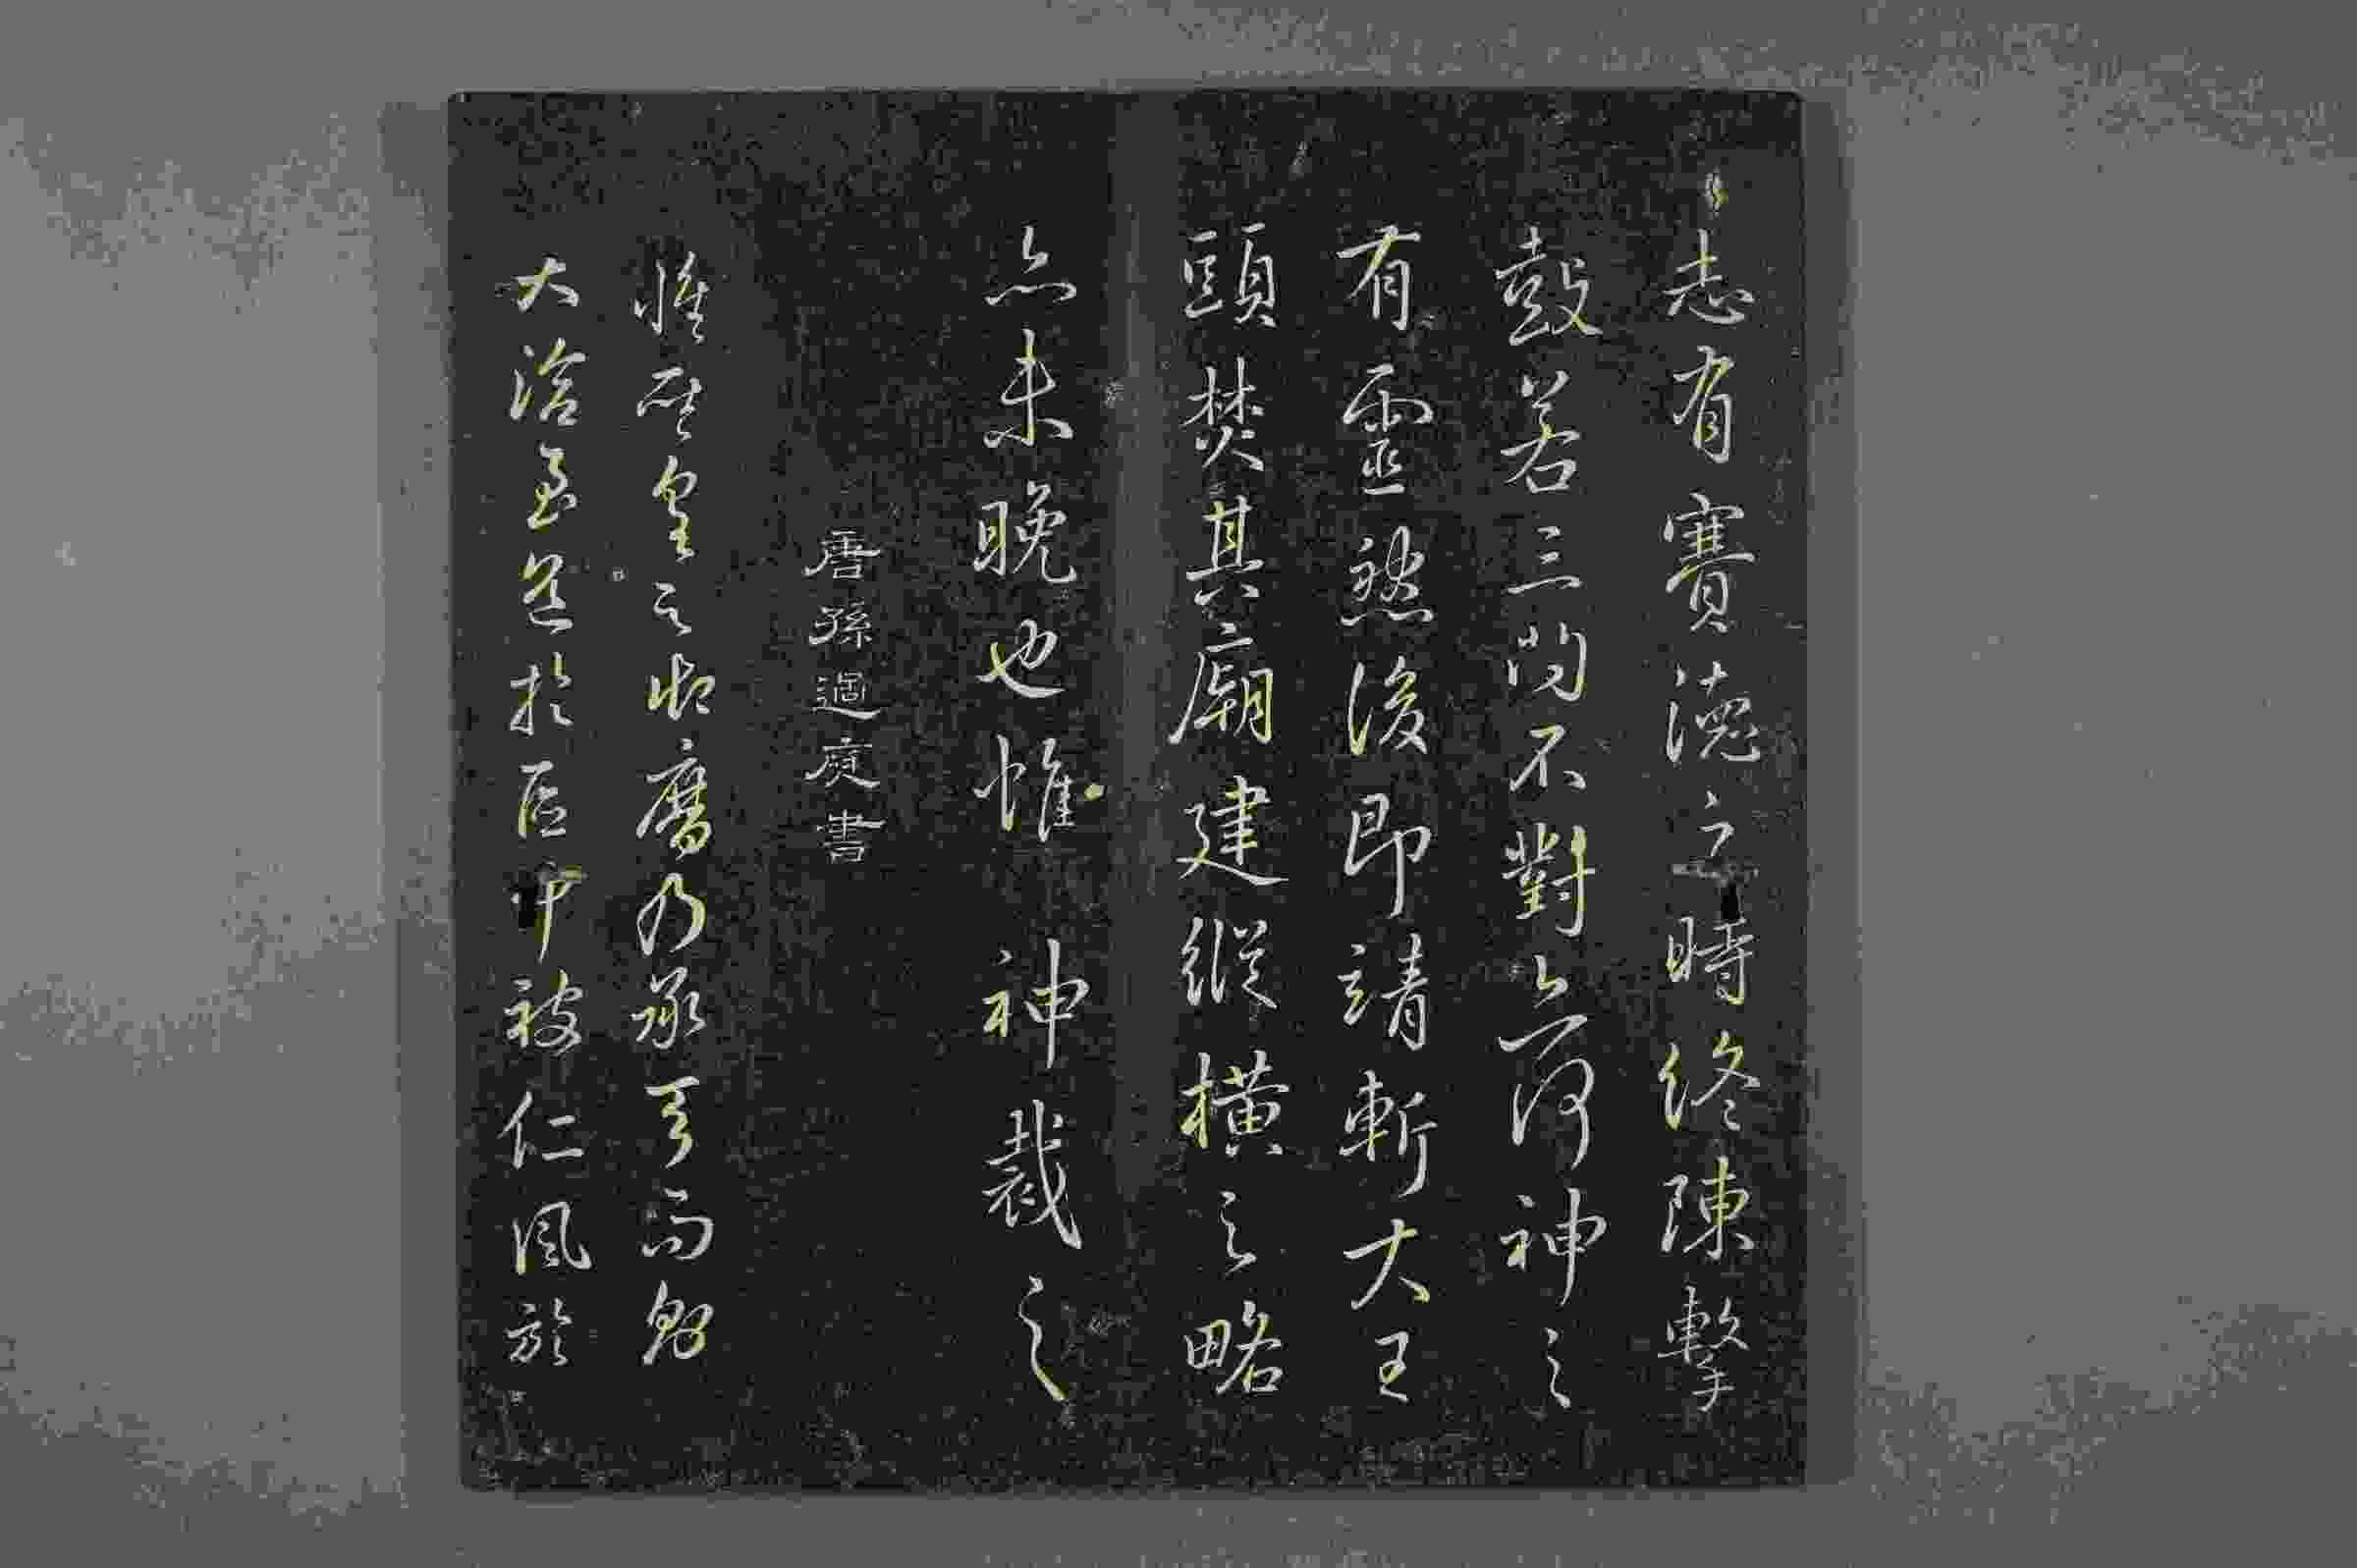 志有賽德之時終陳擊
鼓若三問不對亦何神之
有靈然後即靖斬大王
頭焚其廟建縱橫之略
亦未晚也惟神裁之
唐孫過庭書
惟皇之御曆乃承天而
大洽至道於區中被仁風於